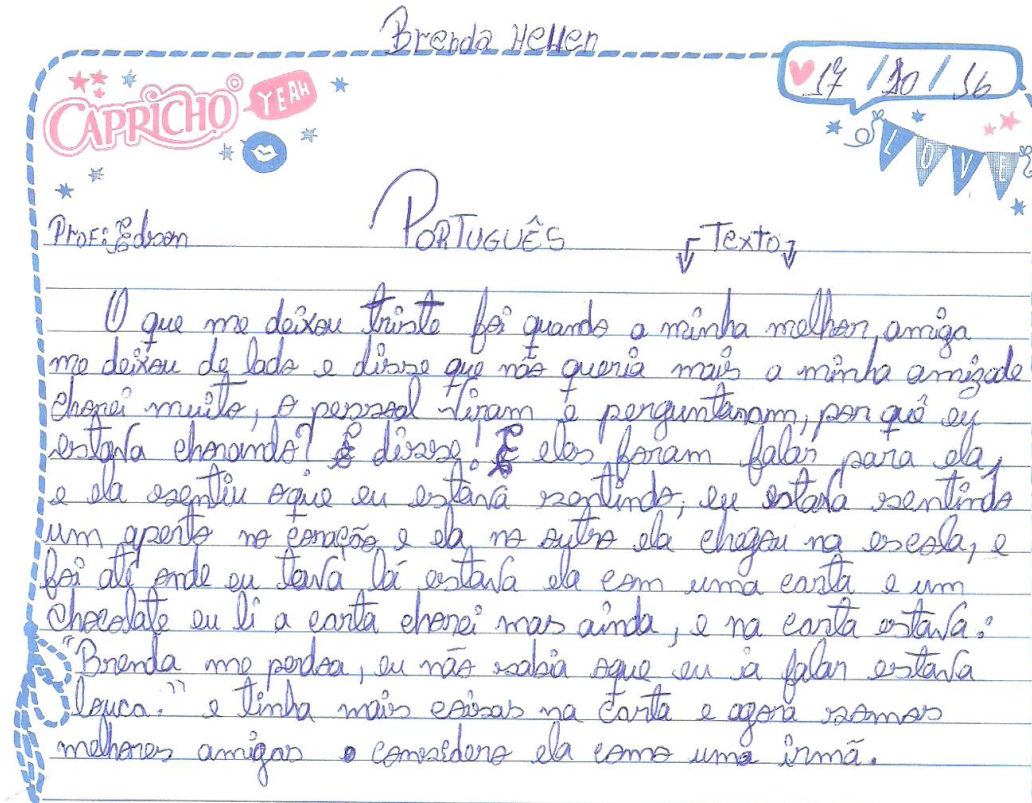 Brenda Hellen
17/10/16
CAPRICHO © YEAH
LOVE
Prof: Edson PORTUGUÊS Texto
O que me deixou triste foi quando a minha melhor amiga
me deixou de lado e disse que não queria mais a minha amizade
chorei muito, o pessoal viram e perguntaram, por quê eu
estava chorando? E disse! E eles foram falar para ela,
e ela sentiu oque eu estava sentindo, eu estava sentindo
um aperto no coração e ela no outro ela chegou na escola, e
foi até onde eu tava lá estava ela com uma carta e um
chocolate eu li a carta chorei mas ainda, e na carta estava:
"Brenda me perdoa, eu não sabia oque eu ia falar estava
louca." e tinha mais coisas na carta e agora somos
melhores amigas e considero ela como uma irmã.